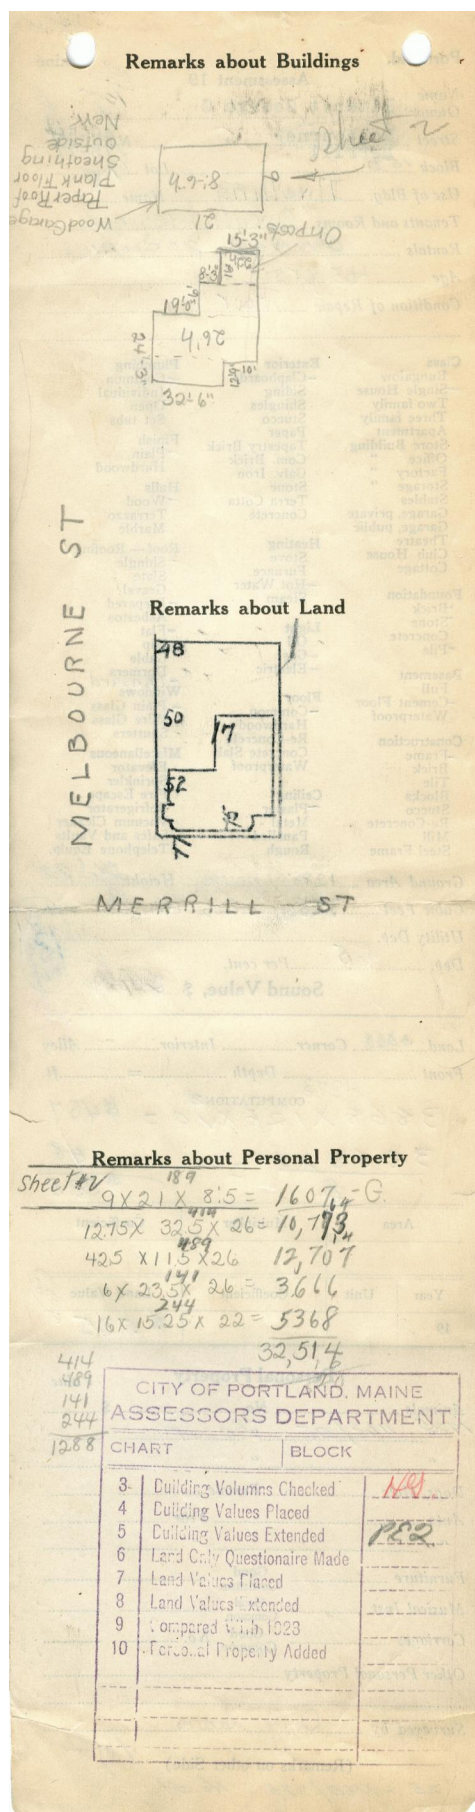 Remarks about Buildings
Sheet 2
New
outside
Sheathing
Plank Floor
Paper Roof
Wood Garage
8'-6 h
9
21
On posts
15'-3"
22h
16'
8'-3"
19'-0"
26'h
24'-3"
32'-6"
10'
MELBOURNE ST
Remarks about Land
48
50
17
52
MERRILL ST
Remarks about Personal Property
Sheet #2
189
9 X 21 X 8.5 = 1607 - G.
414
12.75 X 32.5 X 26 = 10,773
489
42.5 X 11.5 X 26 12,707
141
6 X 23.5 X 26 = 3666
244
16 X 15.25 X 22 = 5368
32,514
414
489
141
244
1288
CITY OF PORTLAND, MAINE
ASSESSORS DEPARTMENT
CHART BLOCK
3 Building Volumns Checked
4 Building Values Placed
5 Building Values Extended PE2
6 Land Only Questionaire Made
7 Land Values Placed
8 Land Values Extended
9 Compared With 1923
10 Personal Property Added